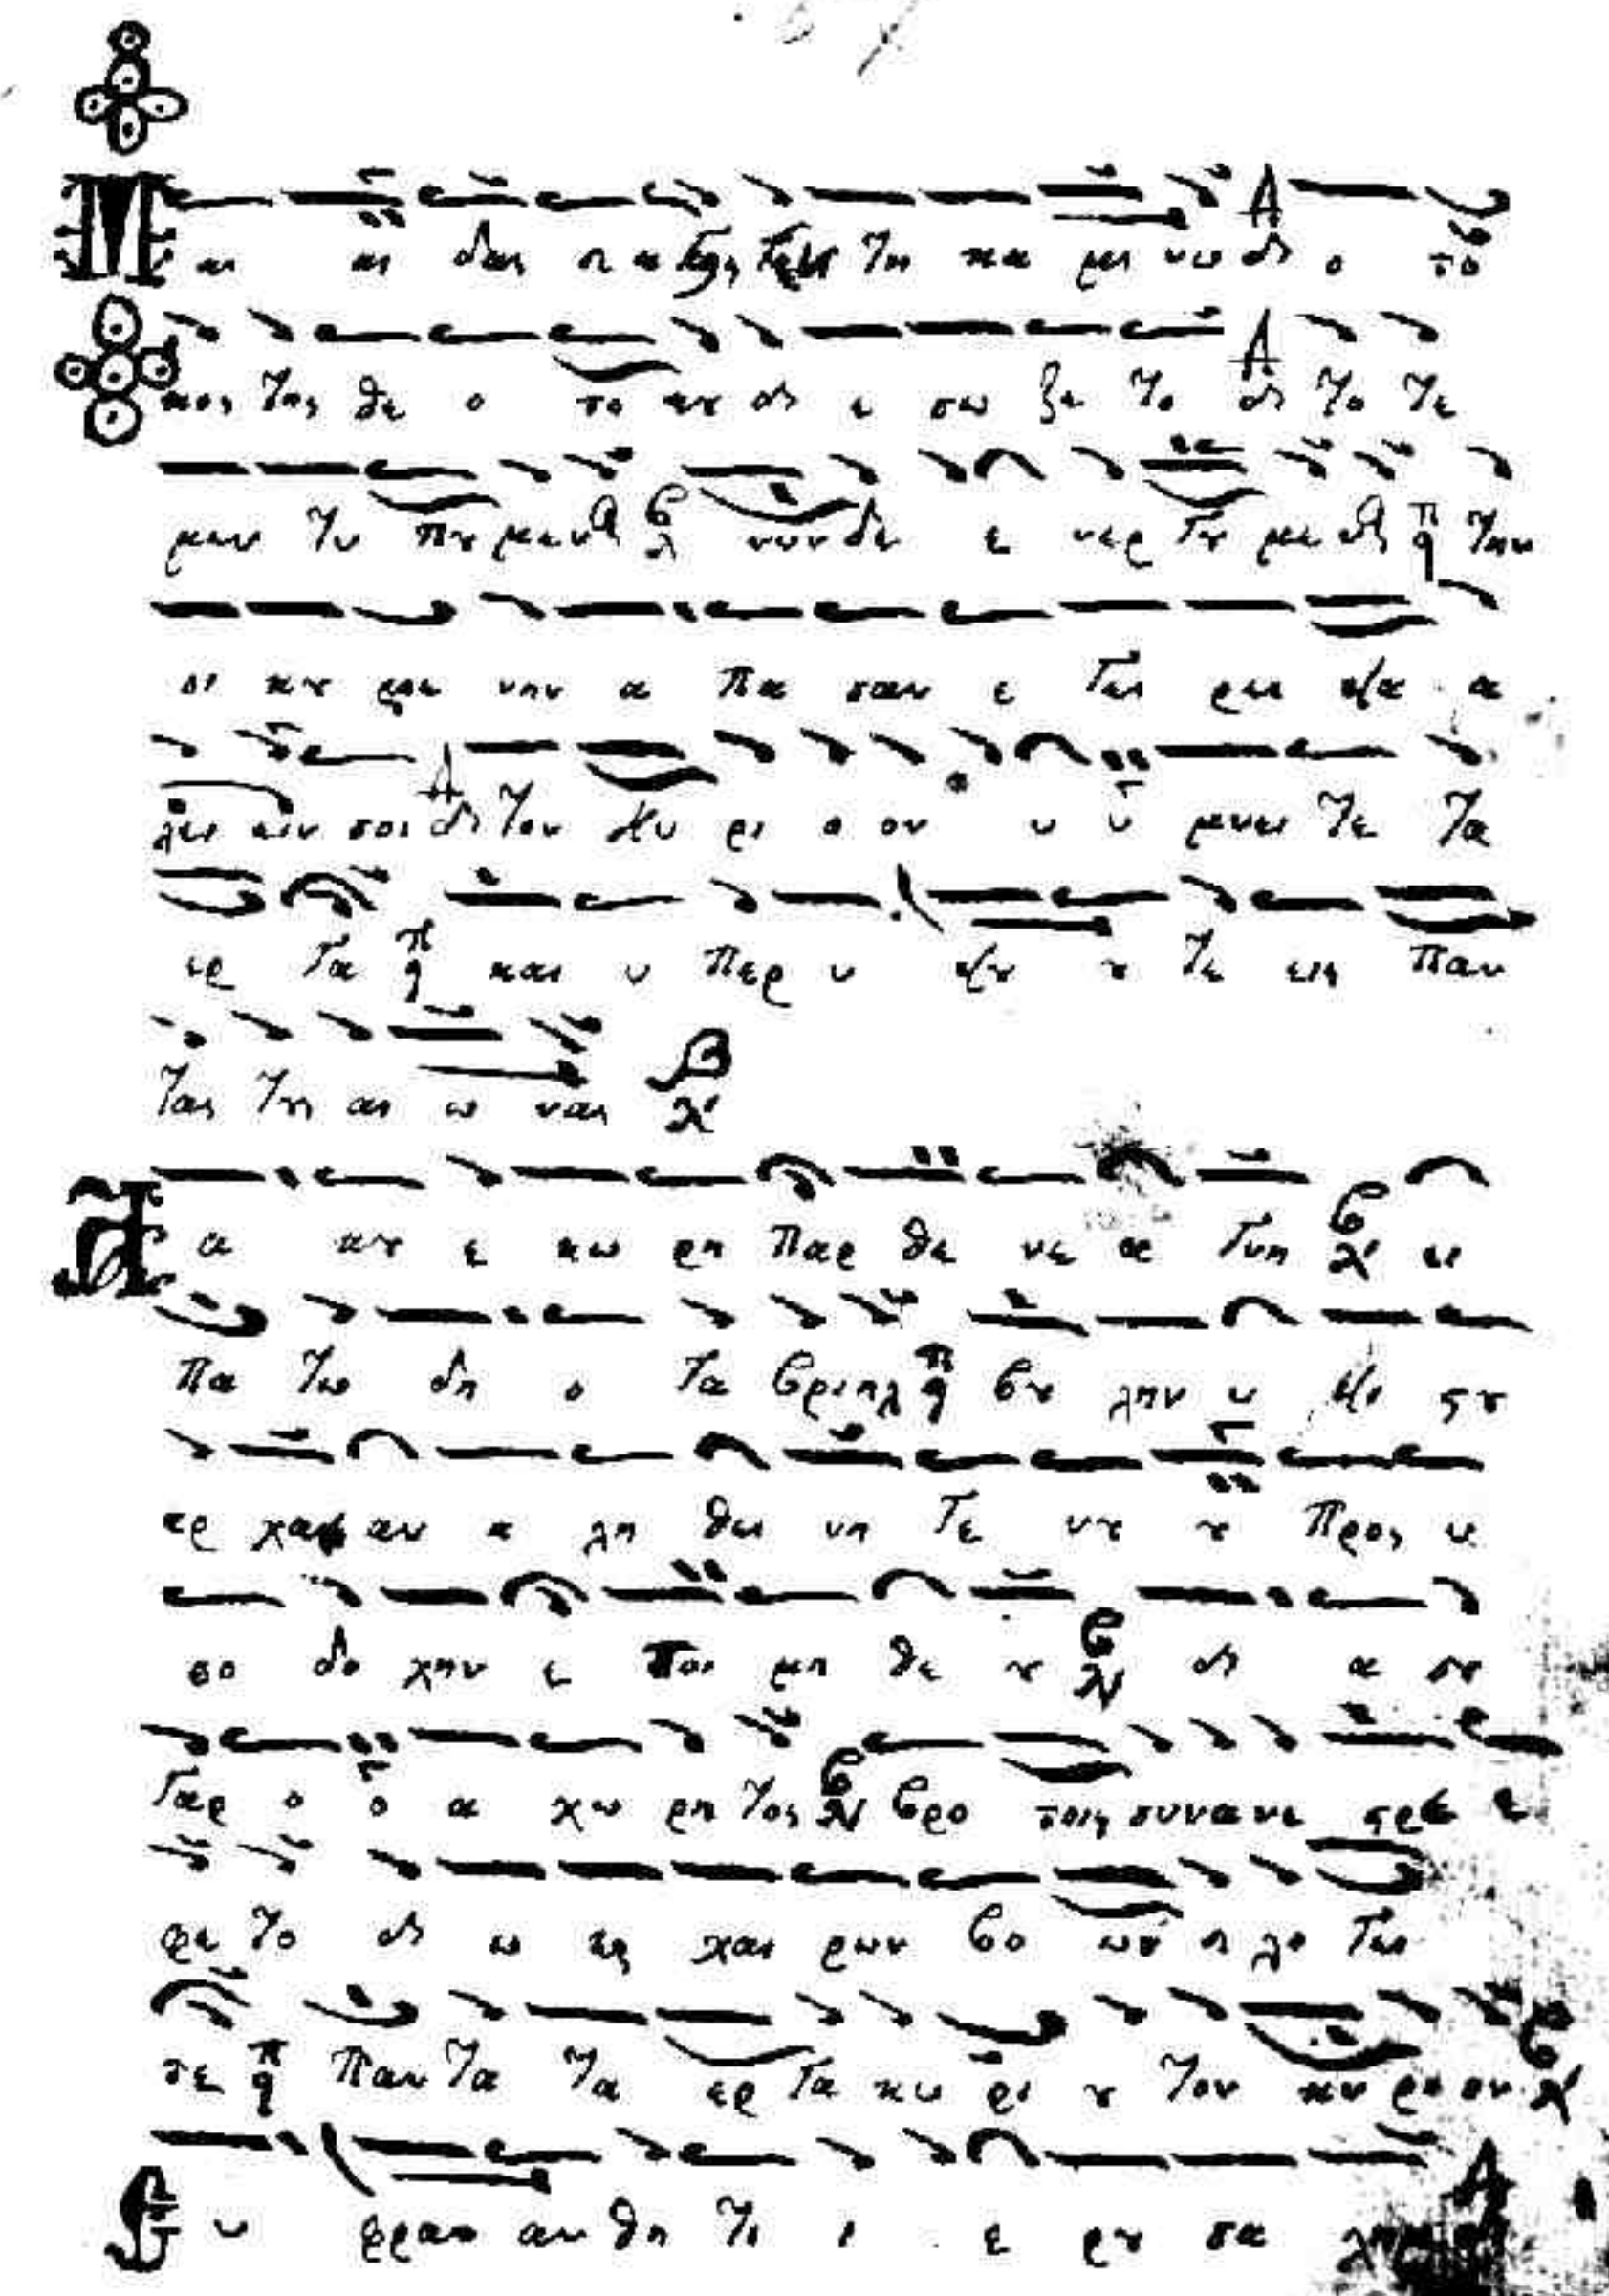 Π αι αι δας ευ α γεις εν τη κα μι νω δι ο το
κος της θε ο το κου δι ε σω ξε το δι το τε
μεν τυ που μεν νυν δε ε νερ γου με την
οι κου με νην α πα σαν ε γει ρει ψα α
λει ειν σοι τον Κυ ρι ο ον υ υ μνει τε τα
ερ γα και υ περ υ ψου ου τε εις παν
τας τους αι ω νας
Α α κου ε κο ρη παρ θε νε α γνη ει
πα τω δη ο Γα βριηλ βου λην υ ψι στου
αρ χαι αν α λη θι νη γε νου ου προς υ
πο δο χην ε τοι μη θε ου δι α σου
γαρ ο ο α χω ρη τος βρο τοις συνανε στρε ε
φε το δι ο και χαι ρων βο ων ευ λο γει
τε παν τα τα ερ γα κυ ρι ου τον κυ ρι ον
Ε υ φραι αν θη τι ι ε ρου σα λημ